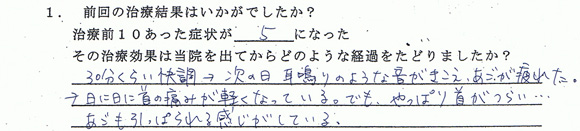 1. 前回の治療結果はいかがでしたか？
治療前10あった症状が 5 になった
その治療効果は当院を出てからどのような経過をたどりましたか？
30分くらい快調→次の日 耳鳴りのような音がきこえ、あごが疲れた。
→日に日に首の痛みが軽くなっている。でも、やっぱり首がつらい…
あごも引っぱられる感じがしている。